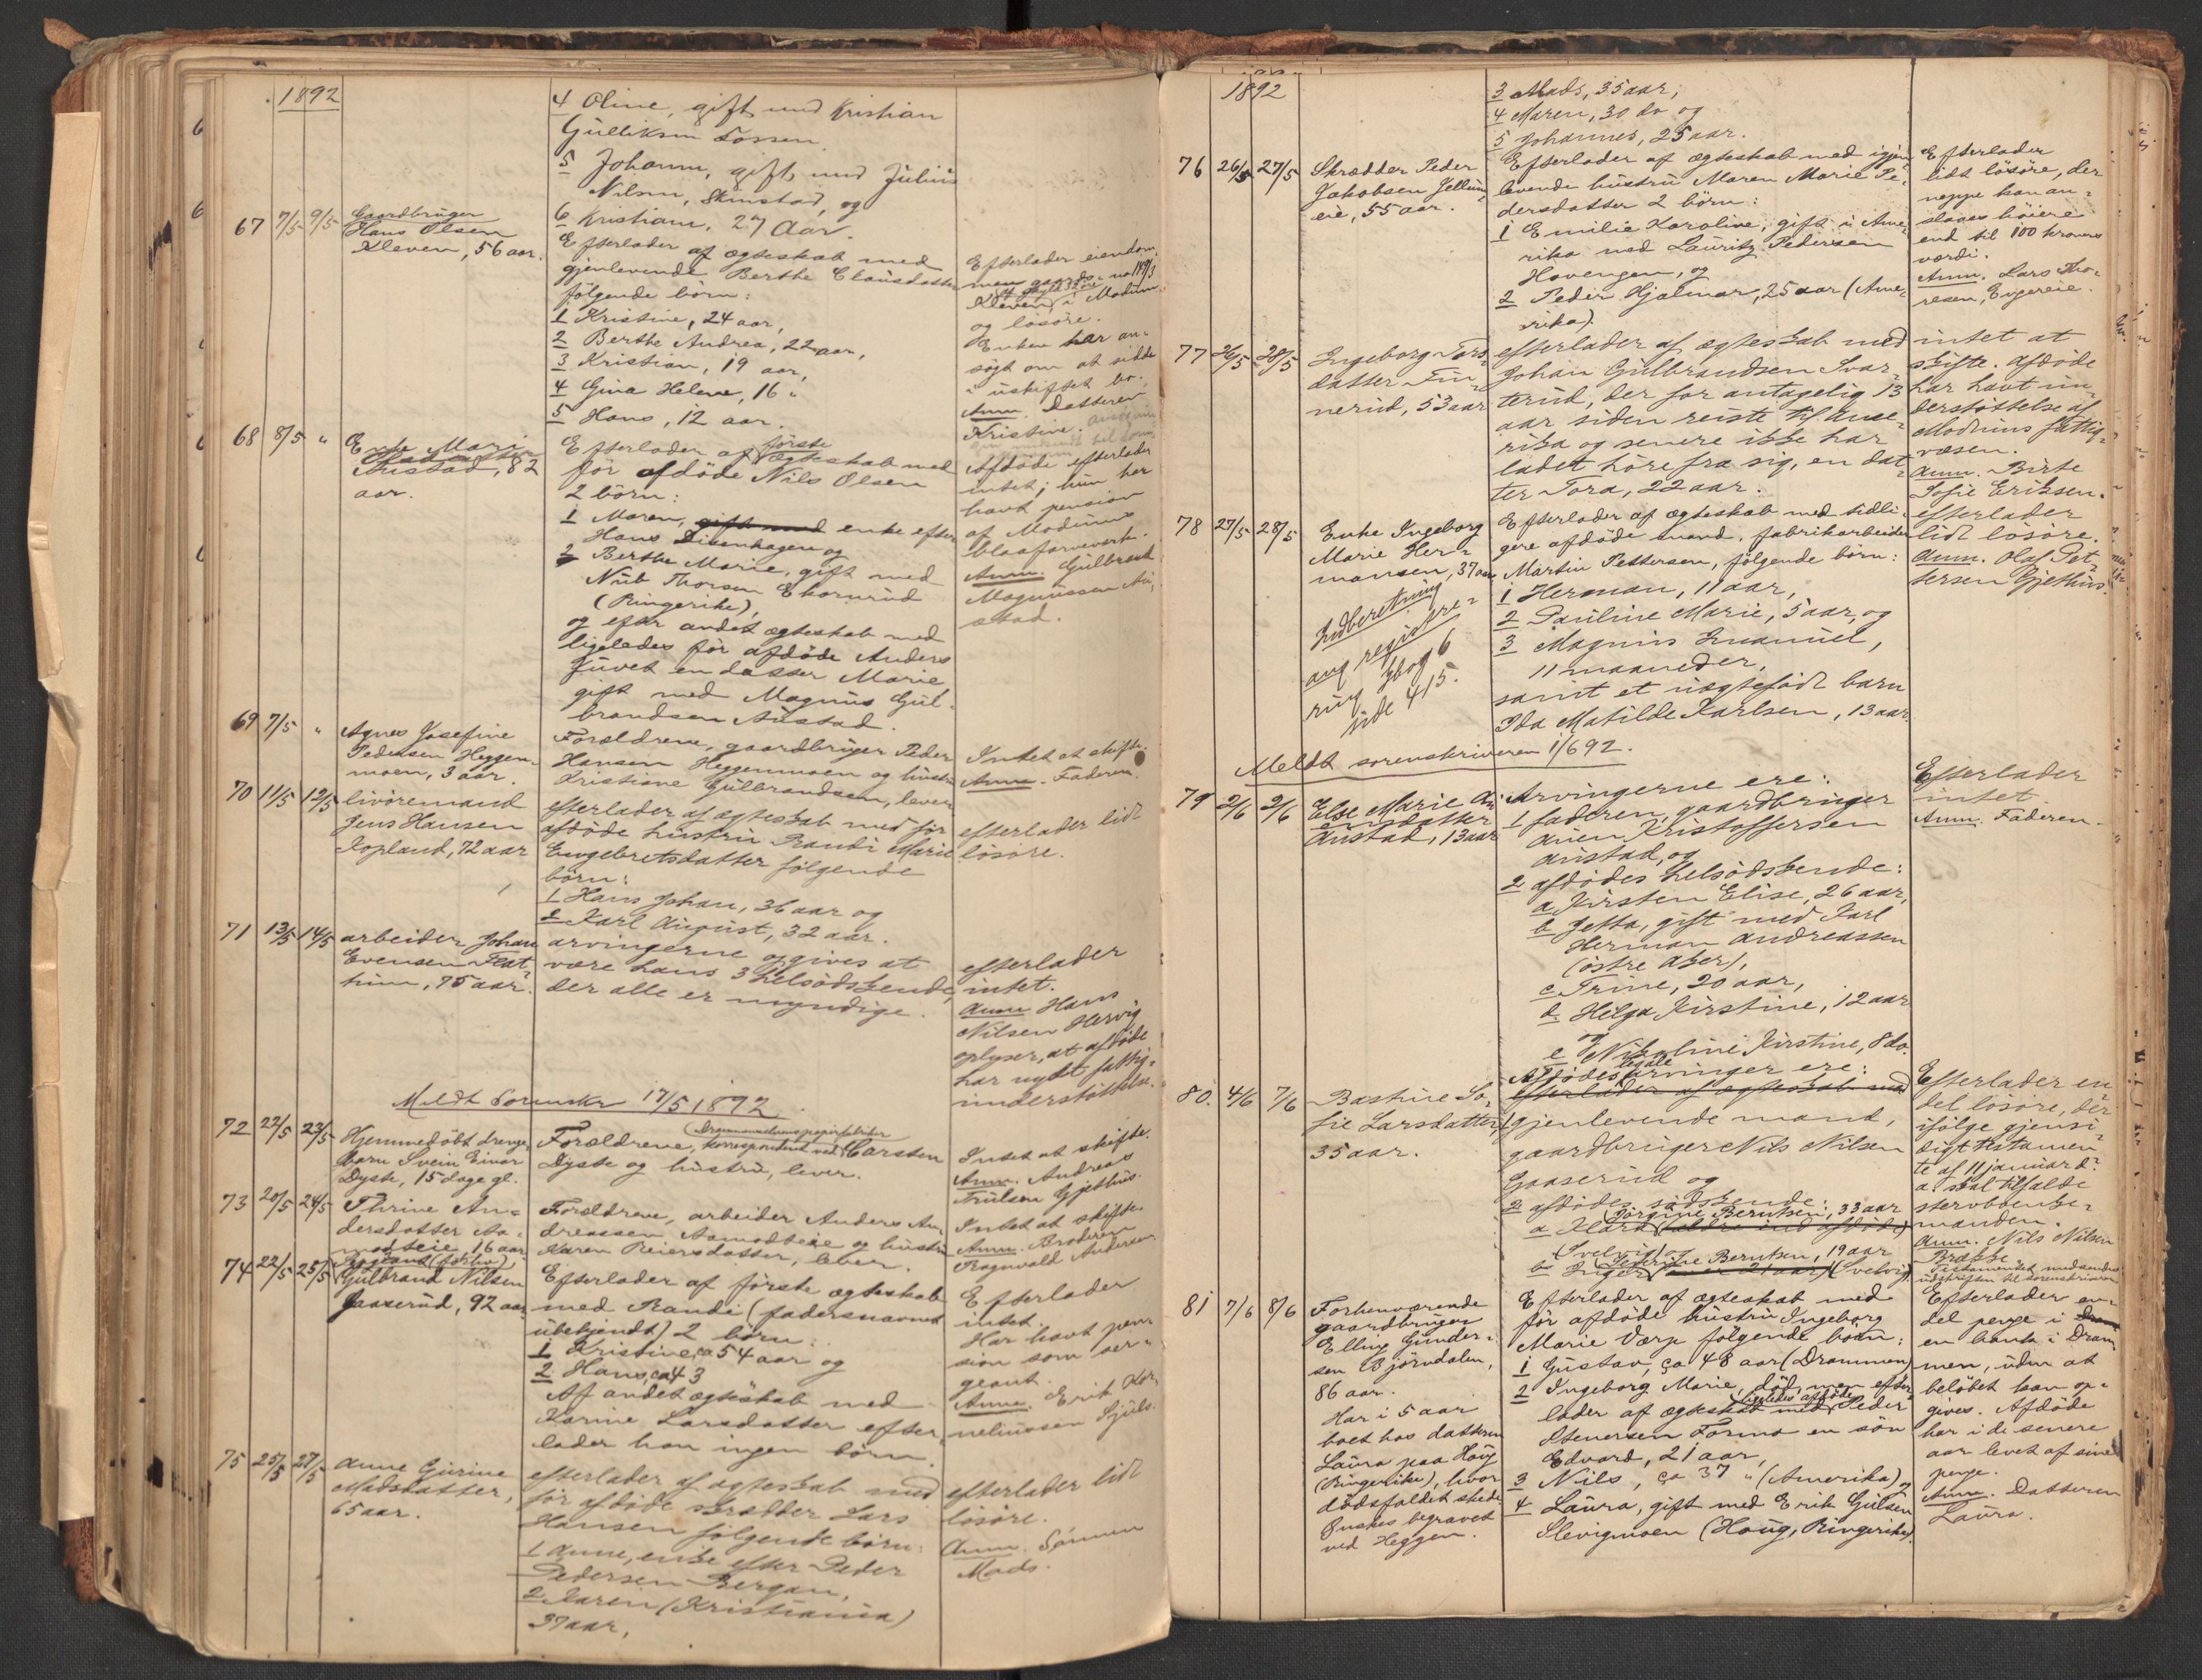 1892
4 Oline, gift med Kristian
Gulliksen Fossen
5 Johanne, gift med Julius
Nilsen, Skinstad, og
6 Kristiane, 27 Aar.
67 7/5 9/5 Gaardbruger
Hans Olsen
Kleven, 56 aar.
Efterlader af ægteskab med
gjenlevende Berthe Clausdatter
følgende børn:
1 Kristine, 24 aar,
2 Berthe Andrea, 22 aar,
3 Kristian, 19 aar,
4 Gina Helene, 16 "
5 Hans, 12 aar.
Efterlader eiendom-
men gaards- no
Kleven, i Modum
og løsøre.
Enken har an-
søgt om at sidde
i uskiftet bo.
Anm. Datteren
Kristine.
68 8/5 " Enke Mari
Austad, 82
aar.
Efterlader af første ægteskab med
før afdøde Nils Olsen
2 børn:
1 Maren, gift med enke efter
Hans Disenhagen og
2 Berthe Marie, gift med
Nub Thorsen Ekornrud
(Ringerike),
og efter andet ægteskab med
ligeledes før afdøde Anders
Juvet en datter Marie
gift med Magnus Gul-
brandsen Austad.
Afdøde efterlader
intet; hun har
havt pension
af Modums
blaafarveverk.
Anm. Gulbrand
Magnussen Au-
stad.
69 7/5 " Agnes Josefine
Pedersen Heggen-
moen, 3 aar.
Forældrene, gaardbruger Peder
Hansen Heggenmoen og hustru
Kristiane Gulbrandsen, lever
Intet at skifte.
Anm. Faderen.
70 11/5 12/5 livøremand
Jens Hansen
Kopland, 72 aar
efterlader af ægteskab med før
afdøde hustru Randi Marie
Engebretsdatter følgende
børn:
1 Hans Johan, 36 aar og
2 Karl August, 32 aar.
efterlader lidt
løsøre.
71 13/5 14/5 arbeider Johan
Evensen Flat-
hun, 75 aar.
arvingerne opgives at
være hans 3 helsødskende,
der alle er myndige.
efterlader
intet.
Anm Hans
Nilsen Hervig
oplyser, at afdøde
har nydt fattig-
understøttelse.
Meldt Sorenskr 17/5 1892
72 22/5 23/5 Hjemmedøbt drenge-
barn Svein Einar
Dyste, 15 dage gl.
Forældrene, korrespondent ved Carsten
Dyste og hustru, lever.
Intet at skifte.
Anm. Andreas
Trulsen Gjethus.
73 20/5 24/5 Thrine An-
dersdatter Aa-
modteie, 16 aar
Forældrene, arbeider Anders An-
dreassen Aamodteie og hustru
Karen Reiersdatter, lever.
Intet at skifte.
Anm. Broderen
Ragnvald Andersen
74 22/5 25/5
Gulbrand Nilsen
Gaaserud, 92 aar
Efterlader af første ægteskab
med Randi (fadersnavnet
ubekjendt) 2 børn:
1 Kristine, ca 54 aar og
2 Hans, ca 43
Af andet ægteskab med
Karine Larsdatter efter-
lader han ingen børn.
Efterlader
intet.
Har havt pen-
sion som ser-
geant.
Anm. Erik Kor-
neliussen Sjuls-
75 25/5 27/5 Anne Gurine
Madsdatter,
65 aar.
efterlader af ægteskab med
før afdøde skrædder Lars
Hansen følgende børn:
1 Anne, enke efter Peder
Pedersen Bergan,
2 Karen (Kristiania)
37 aar,
efterlader lidt
løsøre.
Anm. Sønnen
Mads.
1892
3 Mads, 35 aar,
4 Maren, 30 do og
5 Johannes, 25 aar.
76 26/5 27/5 Skrædder Peder
Jakobsen Jellum
eie, 55 aar.
Efterlader af ægteskab med igjen-
levende hustru Maren Marie Pe-
dersdatter 2 børn:
1 Emilie Karoline, gift i Ame-
rika med Lauritz Pedersen
Hovengen, og
2 Peder Hjalmar, 25 aar (Ame-
rika)
Efterlader
lidt løsøre, der
neppe kan an-
slaaes høiere
end til 100 kroners
værdi.
Anm. Lars Tho-
resen, Engereie.
77 26/5 28/5 Ingeborg Tors-
datter Fin-
nerud, 53 aar
efterlader af ægteskab med
Johan Gulbrandsen Svar-
terud, der for antagelig 13
aar siden reiste til Ame-
rika og senere ikke har
ladet høre fra sig, en dat-
ter Tora, 22 aar.
intet at
skifte. Afdøde
har havt un-
derstøttelse af
Modums fattig-
væsen.
Anm. Birte
Sofie Eriksen.
78 27/5 28/5 Enke Ingeborg
Marie Her-
mansen, 37 aar
Indberetning
ang registre-
ring Kbog 6
side 415.
Efterlader af ægteskab med tidli-
gere afdøde mand, fabrikarbeider
Martin Pettersen, følgende børn:
1 Herman, 11 aar,
2 Pauline Marie, 5 aar, og
3 Magnus Imanuel,
11 maaneder,
samt et uægtefødt barn
Ida Matilde Karlsen, 13 aar.
efterlader
lidt løsøre.
Anm. Olaf Pet-
tersen Gjethus.
Meldt sorenskriveren 1/6 92.
79 2/6 2/6 Else Marie Au-
ensdatter
Austad, 13 aar
Arvingerne ere:
1 faderen, gaardbruger
Auen Kristoffersen
Austad, og
2 afdødes helsødskende:
a Kirsten Elise, 26 aar,
b Jetta, gift med Karl
Herman Andreassen
(østre Aker),
c Trine, 20 aar,
d. Helga Kirstine, 12 aar
og
e Nikoline Kirstine, 8 do.
Efterlader
intet.
Anm. Faderen.
80. 4/6 7/6 Bastine So-
fie Larsdatter,
35 aar.
Afdødes legale arvinger ere:
efterlader af ægteskab med
1 gjenlevende mand,
gaardbruger Nils Nilsen
Gaaserud og
2 afdødes sødskende:
a Klara Jørgine Berntsen, 33 aar
(Svelvig) og
b Inger Berntsen, 19 aar (Svelvig)
Efterlader en
del løsøre, der
ifølge gjensi-
digt testamen-
te af 11 januar d.
a. skal tilfalde
stervboenke-
manden.
Anm. Nils Nilsen
Brække
Testamentet medsendes
udskriften til sorenskriveren
81 7/6 8/6 Forhenværende
gaardbruger
Elling Gunder-
sen Bjørndalen,
86 aar.
Har i 5 aar
boet hos datteren
Laura paa Houg
(Ringerike), hvor
dødsfaldet skede.
Ønskes begravet
ved Heggen.
Efterlader af ægteskab med
før afdøde hustru Ingeborg
Marie Værp følgende børn:
1 Gustav, ca 48 aar (Drammen)
2 Ingeborg Marie, død, men efter-
lader af ægteskab med ligeledes afdøde Peder
Stenersen Formo en søn
Edvard, 21 aar,
3 Nils, ca 37 " (Amerika) og
4 Laura, gift med Erik Gulsen
Slevigmoen (Houg, Ringerike).
Efterlader en-
del penge i Dram
en bank i Dram-
men, uden at
beløbet kan op-
gives. Afdøde
har i de senere
aar levet af sine
penge.
Anm. Datteren
Laura.